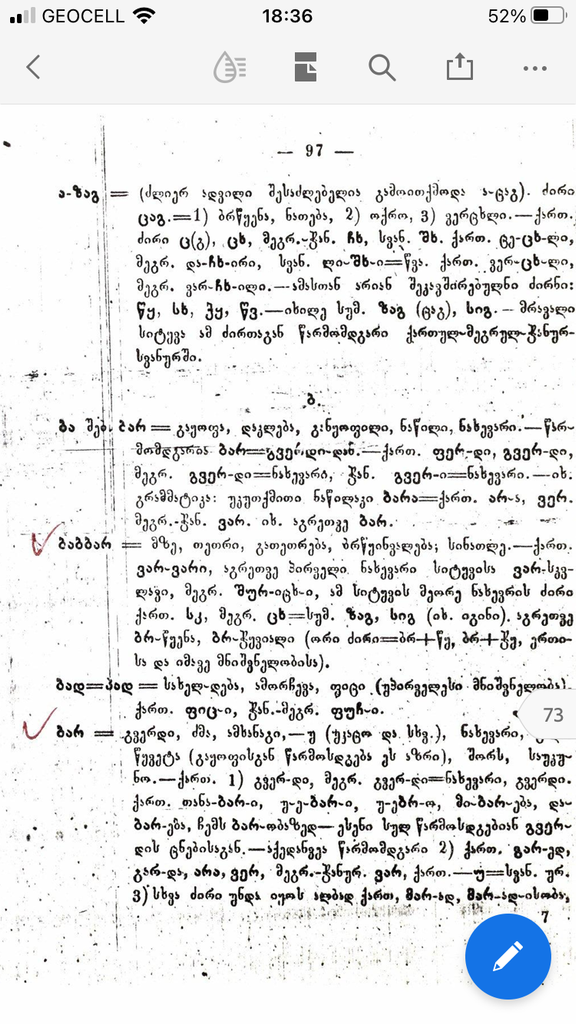 GEOCELL 18:36 52%
— 97 —
ა-ზაგ = (ძლიერ ადვილი შესაძლებელია გამოითქმოდა ა-ცაგ). ძირი
ცაგ.=1) ბრწყენა, ნათება, 2) ოქრო, 3) ვერცხლი.—ქართ.
ძირი ც(გ), ცხ, მეგრ.-ჭან. ჩხ, სვან. შხ. ქართ. ცე-ცხ-ლი,
მეგრ. და-ჩხ-ირი, სვან. ლი-შხ-ი=წვა. ქართ. ვერ-ცხ-ლი,
მეგრ. ვარ-ჩხ-ილი.—ამასთან არიან შეკავშირებულნი ძირნი:
წყ, სხ, ჰყ, წვ.—იხილე სუმ. ზაგ (ცაგ), სიგ.—მრავალი
სიტევა ამ ძირთაგან წარმომდგარი ქართულ-მეგრულ-ჭანურ-
სვანურში.
ბ.
ბა შებ. ბარ = გაყოფა, დაკლება, განყოფილი, ნაწილი, ნახევარი.—წარ-
მომდგარია ბარ=გვერდი-დან.—ქართ. ფერ-დი, გვერ-დი,
მეგრ. გვერ-დი=ნახევარი, ჭან. გვერ-ი=ნახევარი.—იხ.
გრამმატიკა: უკუთქმითი ნაწილაკი ბარა=ქართ. არ-ა, ვერ.
მეგრ.-ჭან. ვარ. იხ. აგრეთვე ბარ.
ბაბბარ = მზე, თეთრი, გათეთრება, ბრწყინვალება; სინათლე.—ქართ.
ვარ-ვარი, აგრეთვე პირველი ნახევარი სიტუვისა ვარ-სკვ-
ლავი, მეგრ. მურ-იცხ-ი, ამ სიტუვის მეორე ნახევრის ძირი
ქართ. სკ, მეგრ. ცხ=სუმ. ზაგ, სიგ (იხ. იგინი). აგრეთვე
ბრ-წყენა, ბრ-ჭყვიალი (ორი ძირი=ბრ+წყ, ბრ+ჭყ, ერთი-
სა და იმავე მნიშვნელობისა).
ბად=პად = სახელ-დება, ამორჩევა, ფიცი (უპირველესი მნიშვნელობა).
ქართ. ფიც-ი, ჭან.-მეგრ. ფუჩ-ი.
73
ბარ = გვერდი, ძმა, ამხანაგი,—უ (უკაცო და სხვ.), ნახევარი,
წყვეტა (გაყოფისგან წარმოსდგება ეს აზრი), შორს, საუკუ-
ნო.—ქართ. 1) გვერ-დი, მეგრ. გვერ-დი=ნახევარი, გვერდი.
ქართ. თანა-ბარ-ი, უ-ე-ბარ-ი, უ-ებრ-ო, მი-ბარ-ება, და-
ბარ-ება, ჩემს ბარ-ობაზედ—ესენი სულ წარმოსდგებიან გვერ-
დის ცნებისაგან.—აქედანვეა წარმომდგარი 2) ქართ. გარ-ედ,
გარ-და, არა, ვერ, მეგრ.-ჭანურ. ვარ, ქართ.—უ=სვან. ურ.
3) სხვა ძირი უნდა იყოს ალბად ქართ, მარ-ად, მარ-ად-ისობა,
7